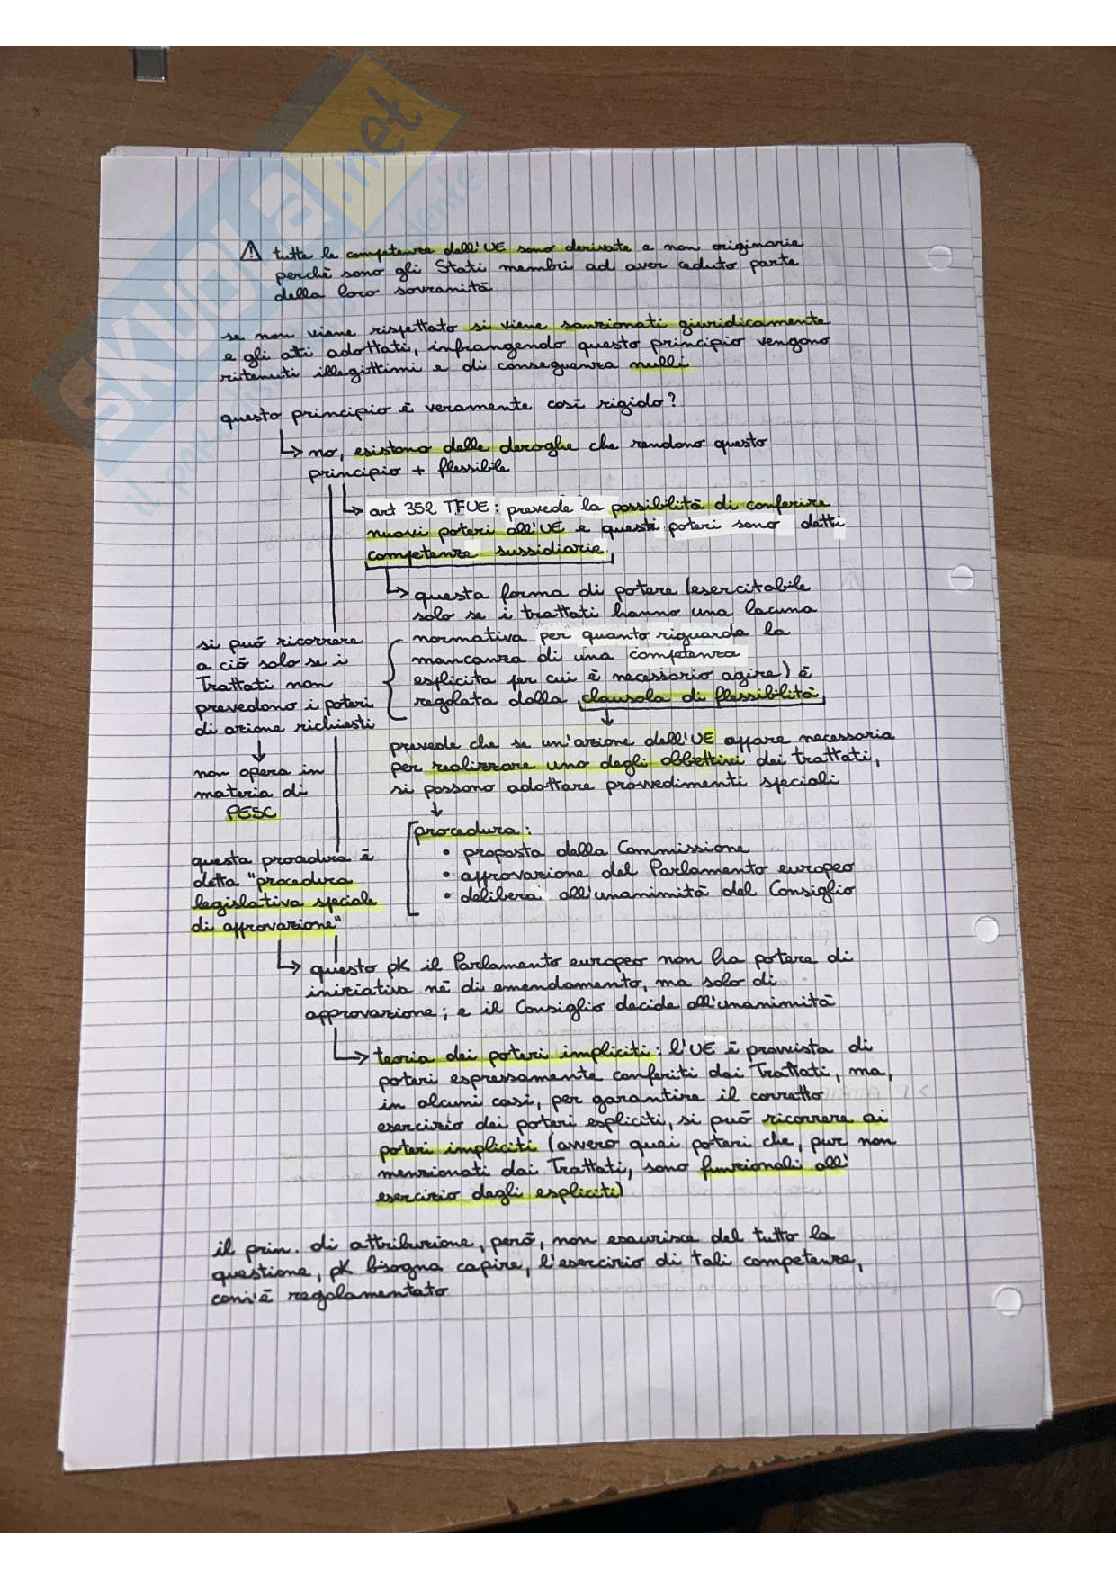 ⚠ tutte le competenze dell'UE sono derivate e non originarie
perchè sono gli Stati membri ad aver ceduto parte
della loro sovranità
se non viene rispettato si viene sanzionati giuridicamente
e gli atti adottati, infrangendo questo principio vengono
ritenuti illegittimi e di conseguenza nulli
questo principio è veramente così rigido?
↳ no, esistono delle deroghe che rendono questo
principio + flessibile
↳ art 352 TFUE: prevede la possibilità di conferire
nuovi poteri all'UE e questi poteri sono detti
competenze sussidiarie
↳ questa forma di potere (esercitabile
solo se i trattati hanno una lacuna
normativa per quanto riguarda la
mancanza di una competenza
esplicita per cui è necessario agire) è
regolata dalla clausola di flessibilità
si può ricorrere
a ciò solo se i
Trattati non
prevedono i poteri
di azione richiesti
↓
non opera in
materia di
PESC
↓
prevede che se un'azione dell'UE appare necessaria
per realizzare uno degli obbettivi dei trattati,
si possono adottare provvedimenti speciali
↓
procedura:
• proposta della Commissione
• approvazione del Parlamento europeo
• delibera all'unanimità del Consiglio
questa procedura è
detta "procedura
legislativa speciale
di approvazione"
↳ questo pk il Parlamento europeo non ha potere di
iniziativa nè di emendamento, ma solo di
approvazione; e il Consiglio decide all'unanimità
↳ teoria dei poteri impliciti: l'UE è provvista di
poteri espressamente conferiti dai Trattati, ma,
in alcuni casi, per garantire il corretto
esercizio dei poteri espliciti, si può ricorrere ai
poteri impliciti (ovvero quei poteri che, pur non
menzionati dai Trattati, sono funzionali all'
esercizio degli espliciti)
il prin. di attribuzione, però, non esaurisce del tutto la
questione, pk bisogna capire, l'esercizio di tali competenze,
com'è regolamentato
SKUOLA.net